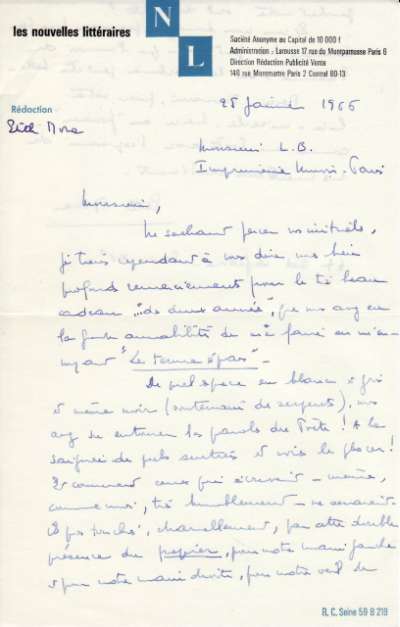 les nouvelles littéraires
N
L
Société Anonyme au Capital de 10 000 f
Administration : Larousse 17 rue du Montparnasse Paris 6
Direction Rédaction Publicité Vente
146 rue Montmartre Paris 2 Central 80-13
Rédaction
Edith Mora
25 janvier 1966
Monsieur L. B.
Imprimerie Union - Paris
Monsieur,
Ne sachant percer vos initiales,
je tiens cependant à vous dire mes bien
profonds remerciements pour le très beau
cadeau "de deux années", que vous avez eu
la grande amabilité de me faire en m'en-
voyant "Le terme épars" -
De quel espace en blanc et gris
et même noir (souterrain de serpents), vous
avez su entourer les paroles du Poète ! A la
saignée de quels
Et comment ceux qui écrivent - même,
comme moi, très humblement - ne seraient-
ils pas touchés, charnellement, par cette double
présence du papier, pour notre main gauche
et pour notre main droite, pour notre œil de
R. C. Seine 59 B 219